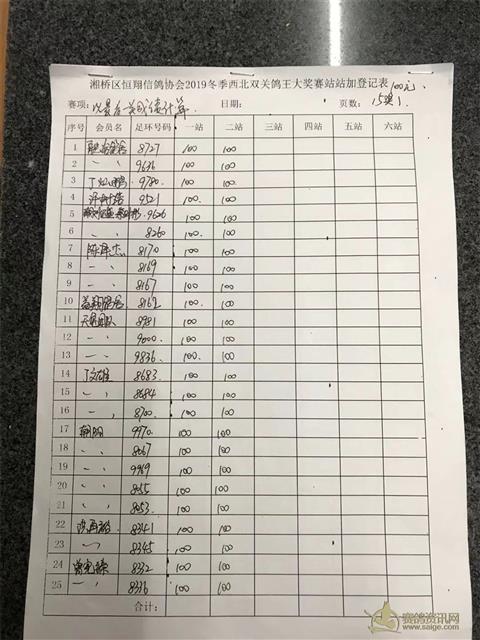 湘桥区恒翔信鸽协会2019冬季西北双关鸽王大奖赛站站加登记表 100元
赛项: 以最后关成绩计算 日期: 页数: 15奖1
序号 会员名 足环号码 一站 二站 三站 四站 五站 六站
1 8727 100 100
2 〃 9636 100 100
3 丁灿鹏 9780 100 100
4 9521 100 100
5 9626 100 100
6 〃 8260 100 100
7 陈泽杰 8170 100 100
8 〃 8169 100 100
9 〃 8167 100 100
10 8162 100 100
11 8981 100 100
12 〃 9000 100 100
13 〃 9836 100 100
14 丁文雄 8683 100 100
15 〃 8684 100 100
16 〃 8700 100 100
17 朝阳 9970 100 100
18 〃 8067 100 100
19 〃 9969 100 100
20 〃 8055 100 100
21 〃 8053 100 100
22 8341 100 100
23 〃 8345 100 100
24 8332 100 100
25 〃 8336 100 100
合计:
赛鸽资讯网
www.saige.com